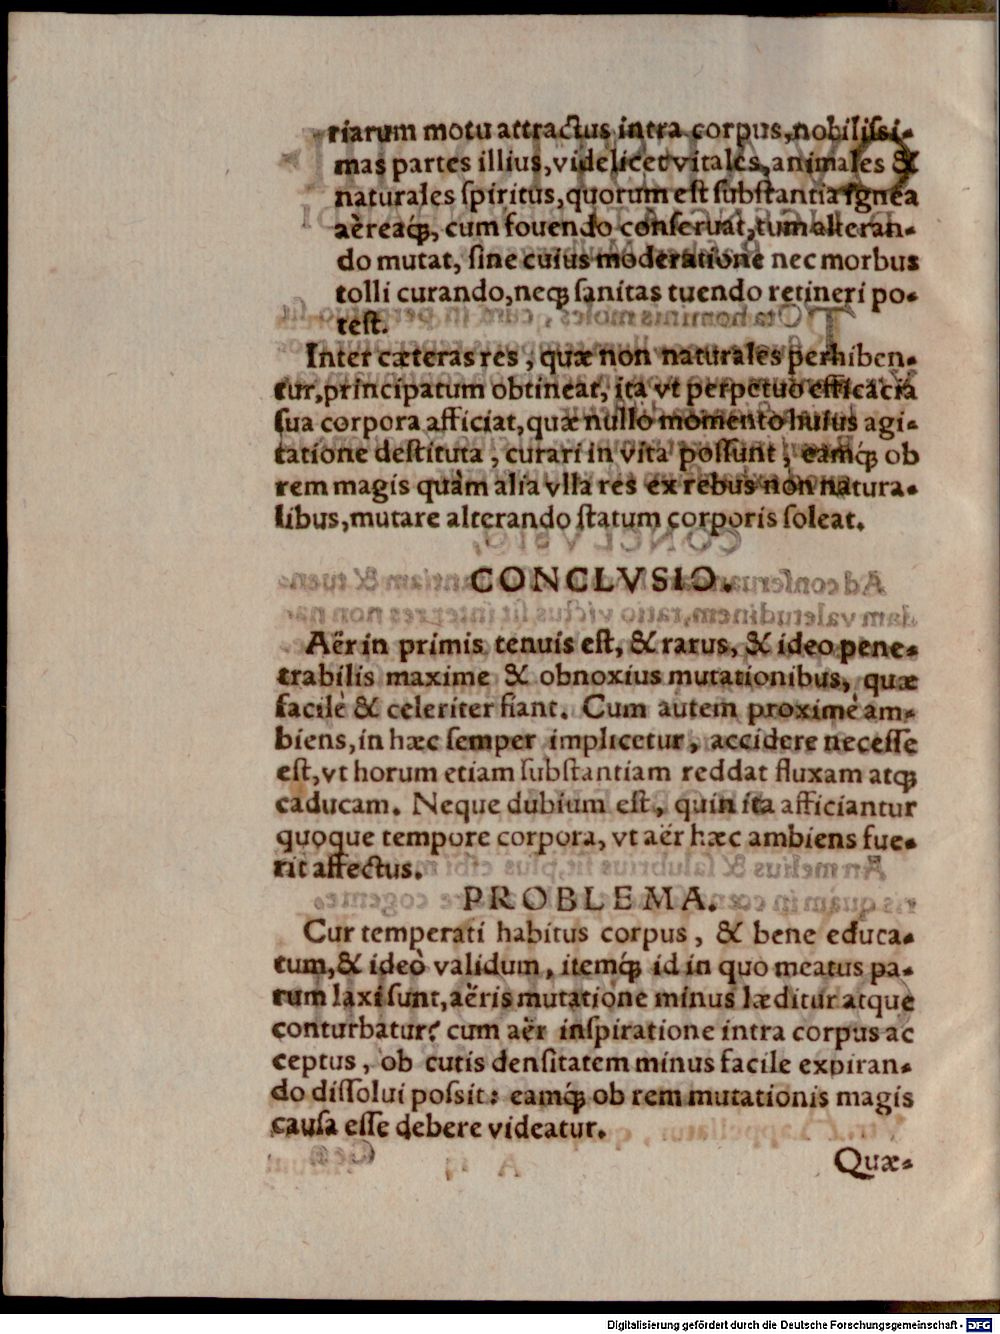 riarum motu attractus intra corpus, nobilissi-
mas partes illius, videlicet vitales, animales &
naturales spiritus, quorum est substantia ignea
aëreaq́;, cum fouendo conseruat, tum alteran-
do mutat, sine cuius moderatione nec morbus
tolli curando, neq; sanitas tuendo retineri po-
test.
Inter cæteras res, quæ non naturales perhiben-
tur, principatum obtineat, ita vt perpetuo efficacia
sua corpora afficiat, quæ nullo momento huius agi-
tatione destituta, curari in vita possunt, eamq́; ob
rem magis quàm alia vlla res ex rebus non natura-
libus, mutare alterando statum corporis soleat.
CONCLVSIO.
Aër in primis tenuis est, & rarus, & ideo pene-
trabilis maxime & obnoxius mutationibus, quæ
facilè & celeriter fiant. Cum autem proximè am-
biens, in hæc semper implicetur, accidere necesse
est, vt horum etiam substantiam reddat fluxam atq;
caducam. Neque dubium est, quin ita afficiantur
quoque tempore corpora, vt aër hæc ambiens fue-
rit affectus.
PROBLEMA.
Cur temperati habitus corpus, & bene educa-
tum, & ideò validum, itemq́; id in quo meatus pa-
rum laxi sunt, aëris mutatione minus læditur atque
conturbatur? cum aër inspiratione intra corpus ac
ceptus, ob cutis densitatem minus facile expiran-
do dissolui possit: eamq́; ob rem mutationis magis
causa esse debere videatur.
Quæ-
Digitalisierung gefördert durch die Deutsche Forschungsgemeinschaft - DFG